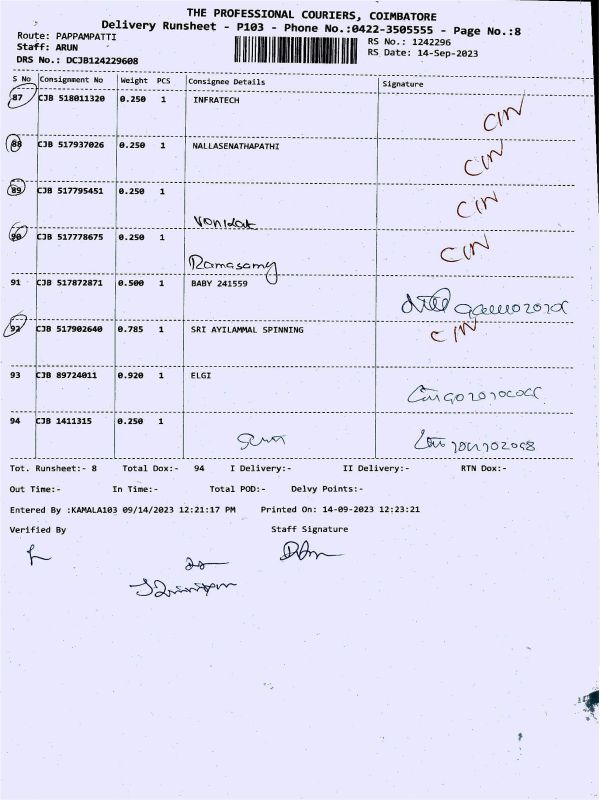 THE PROFESSIONAL COURIERS, COIMBATORE
Delivery Runsheet - P103 - Phone No.:0422-3505555 - Page No.:8
Route: PAPPAMPATTI
RS No.: 1242296
Staff: ARUN
RS Date: 14-Sep-2023
DRS No.: DCJB124229608
S No Consignment No Weight PCS Consignee Details Signature
87 CJB 518011320 0.250 1 INFRATECH CIN
88 CJB 517937026 0.250 1 NALLASENATHAPATHI CIN
89 CJB 517795451 0.250 1 CIN
90 CJB 517778675 0.250 1 Ramasamy CIN
91 CJB 517872871 0.500 1 BABY 241559
92 CJB 517902640 0.785 1 SRI AYILAMMAL SPINNING CIN
93 CJB 89724011 0.920 1 ELGI
94 CJB 1411315 0.250 1
Tot. Runsheet:- 8 Total Dox:- 94 I Delivery:- II Delivery:- RTN Dox:-
Out Time:- In Time:- Total POD:- Delvy Points:-
Entered By :KAMALA103 09/14/2023 12:21:17 PM Printed On: 14-09-2023 12:23:21
Verified By Staff Signature